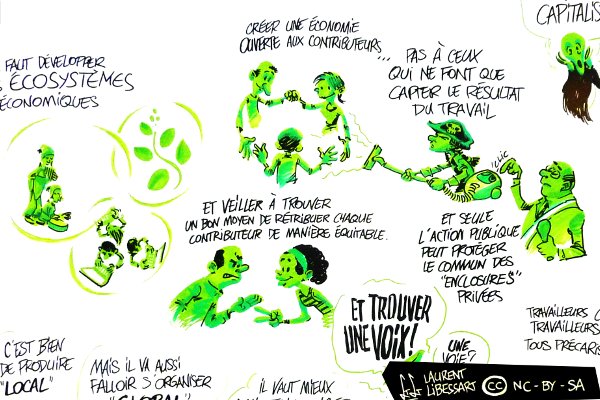 CAPITALIS
FAUT DÉVELOPPER
ÉCOSYSTÈMES
ÉCONOMIQUES
CRÉER UNE ÉCONOMIE
OUVERTE AUX CONTRIBUTEURS...
PAS À CEUX
QUI NE FONT QUE
CAPTER LE RÉSULTAT
DU TRAVAIL
CLIC
ET VEILLER À TROUVER
UN BON MOYEN DE RÉTRIBUER CHAQUE
CONTRIBUTEUR DE MANIÈRE ÉQUITABLE.
ET SEULE
L'ACTION PUBLIQUE
PEUT PROTÉGER
LE COMMUN DES
"ENCLOSURES"
PRIVÉES
ET TROUVER
UNE VOIX!
UNE
VOIE?
TRAVAILLEURS
TRAVAILLEURS
TOUS PRÉCARIS
C'EST BIEN
DE PRODUIRE
"LOCAL"
MAIS IL VA AUSSI
FALLOIR S'ORGANISER
"GLOBAL"
IL VAUT MIEUX
LAURENT
LIBESSART
CC NC-BY-SA